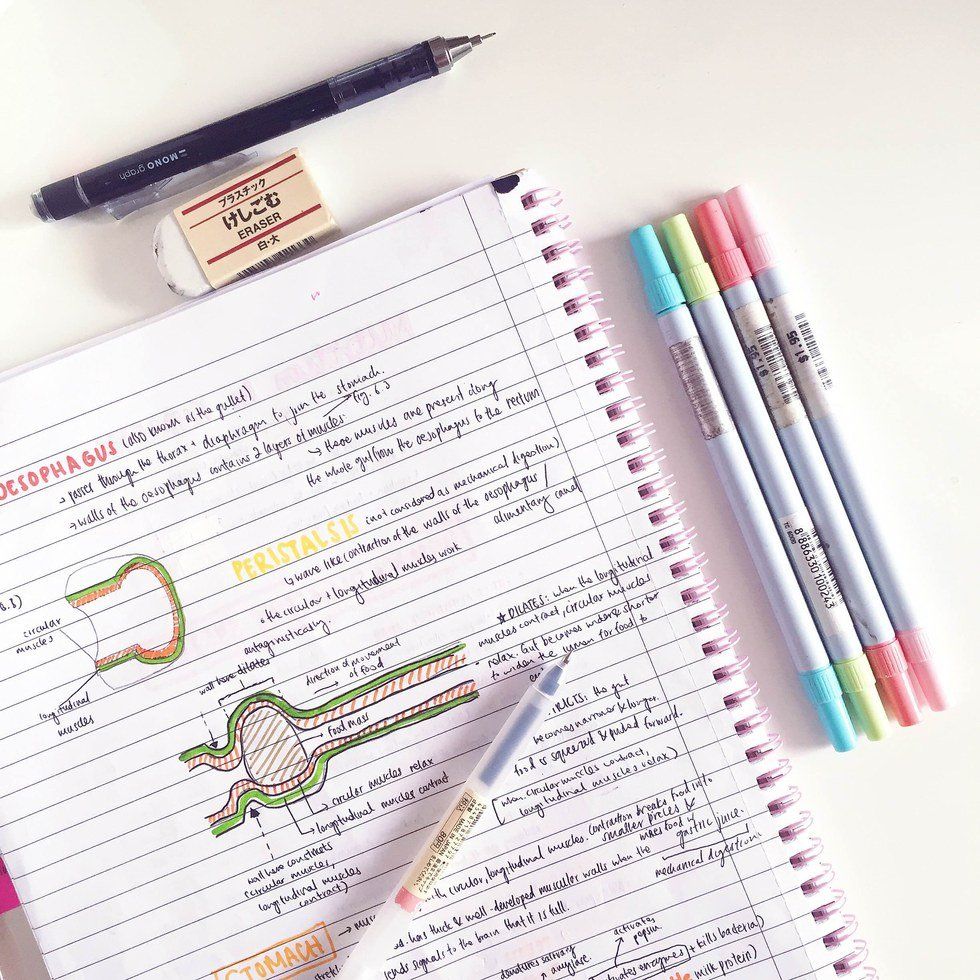 MONO graph
プラスチック
けしごむ
ERASER
白・大
$1.95
$1.95
8 886330 100243
OESOPHAGUS (also known as the gullet)
→ passes through the thorax + diaphragm to join the stomach.
→ walls of the oesophagus contains 2 layers of muscles. fig. 6.3
→ these muscles are present along
the whole gut from the oesophagus to the rectum
PERISTALSIS (not considered as mechanical digestion)
↳ wave like contraction of the walls of the oesophagus /
alimentary canal
• the circular + longitudinal muscles work
antagnistically.
circular
muscles
longitudinal
muscles
wall here dilates
direction of movement
of food
food mass
circular muscles relax
longitudinal muscles contract
wall here constricts
(circular muscles,
longitudinal muscles
contract)
★ DILATES: when the longitudinal
muscles contract, circular muscles
relax. Gut becomes wider & shorter
to widen the lumen for food to
RICTS: the gut
becomes narrower & longer.
food is squeezed & pushed forward.
(when circular muscles contract,
longitudinal muscles relax)
STOMACH
→ mus
with circular, longitudinal muscles. contraction breaks food into
smaller pieces &
mixes food w
gastric juice.
mechanical digestion
has thick & well-developed muscular walls when the
sends signals to the brain that it is full.
denatures salivary
amylase.
activates
pepsin
enzymes + kills bacteria)
milk protein)